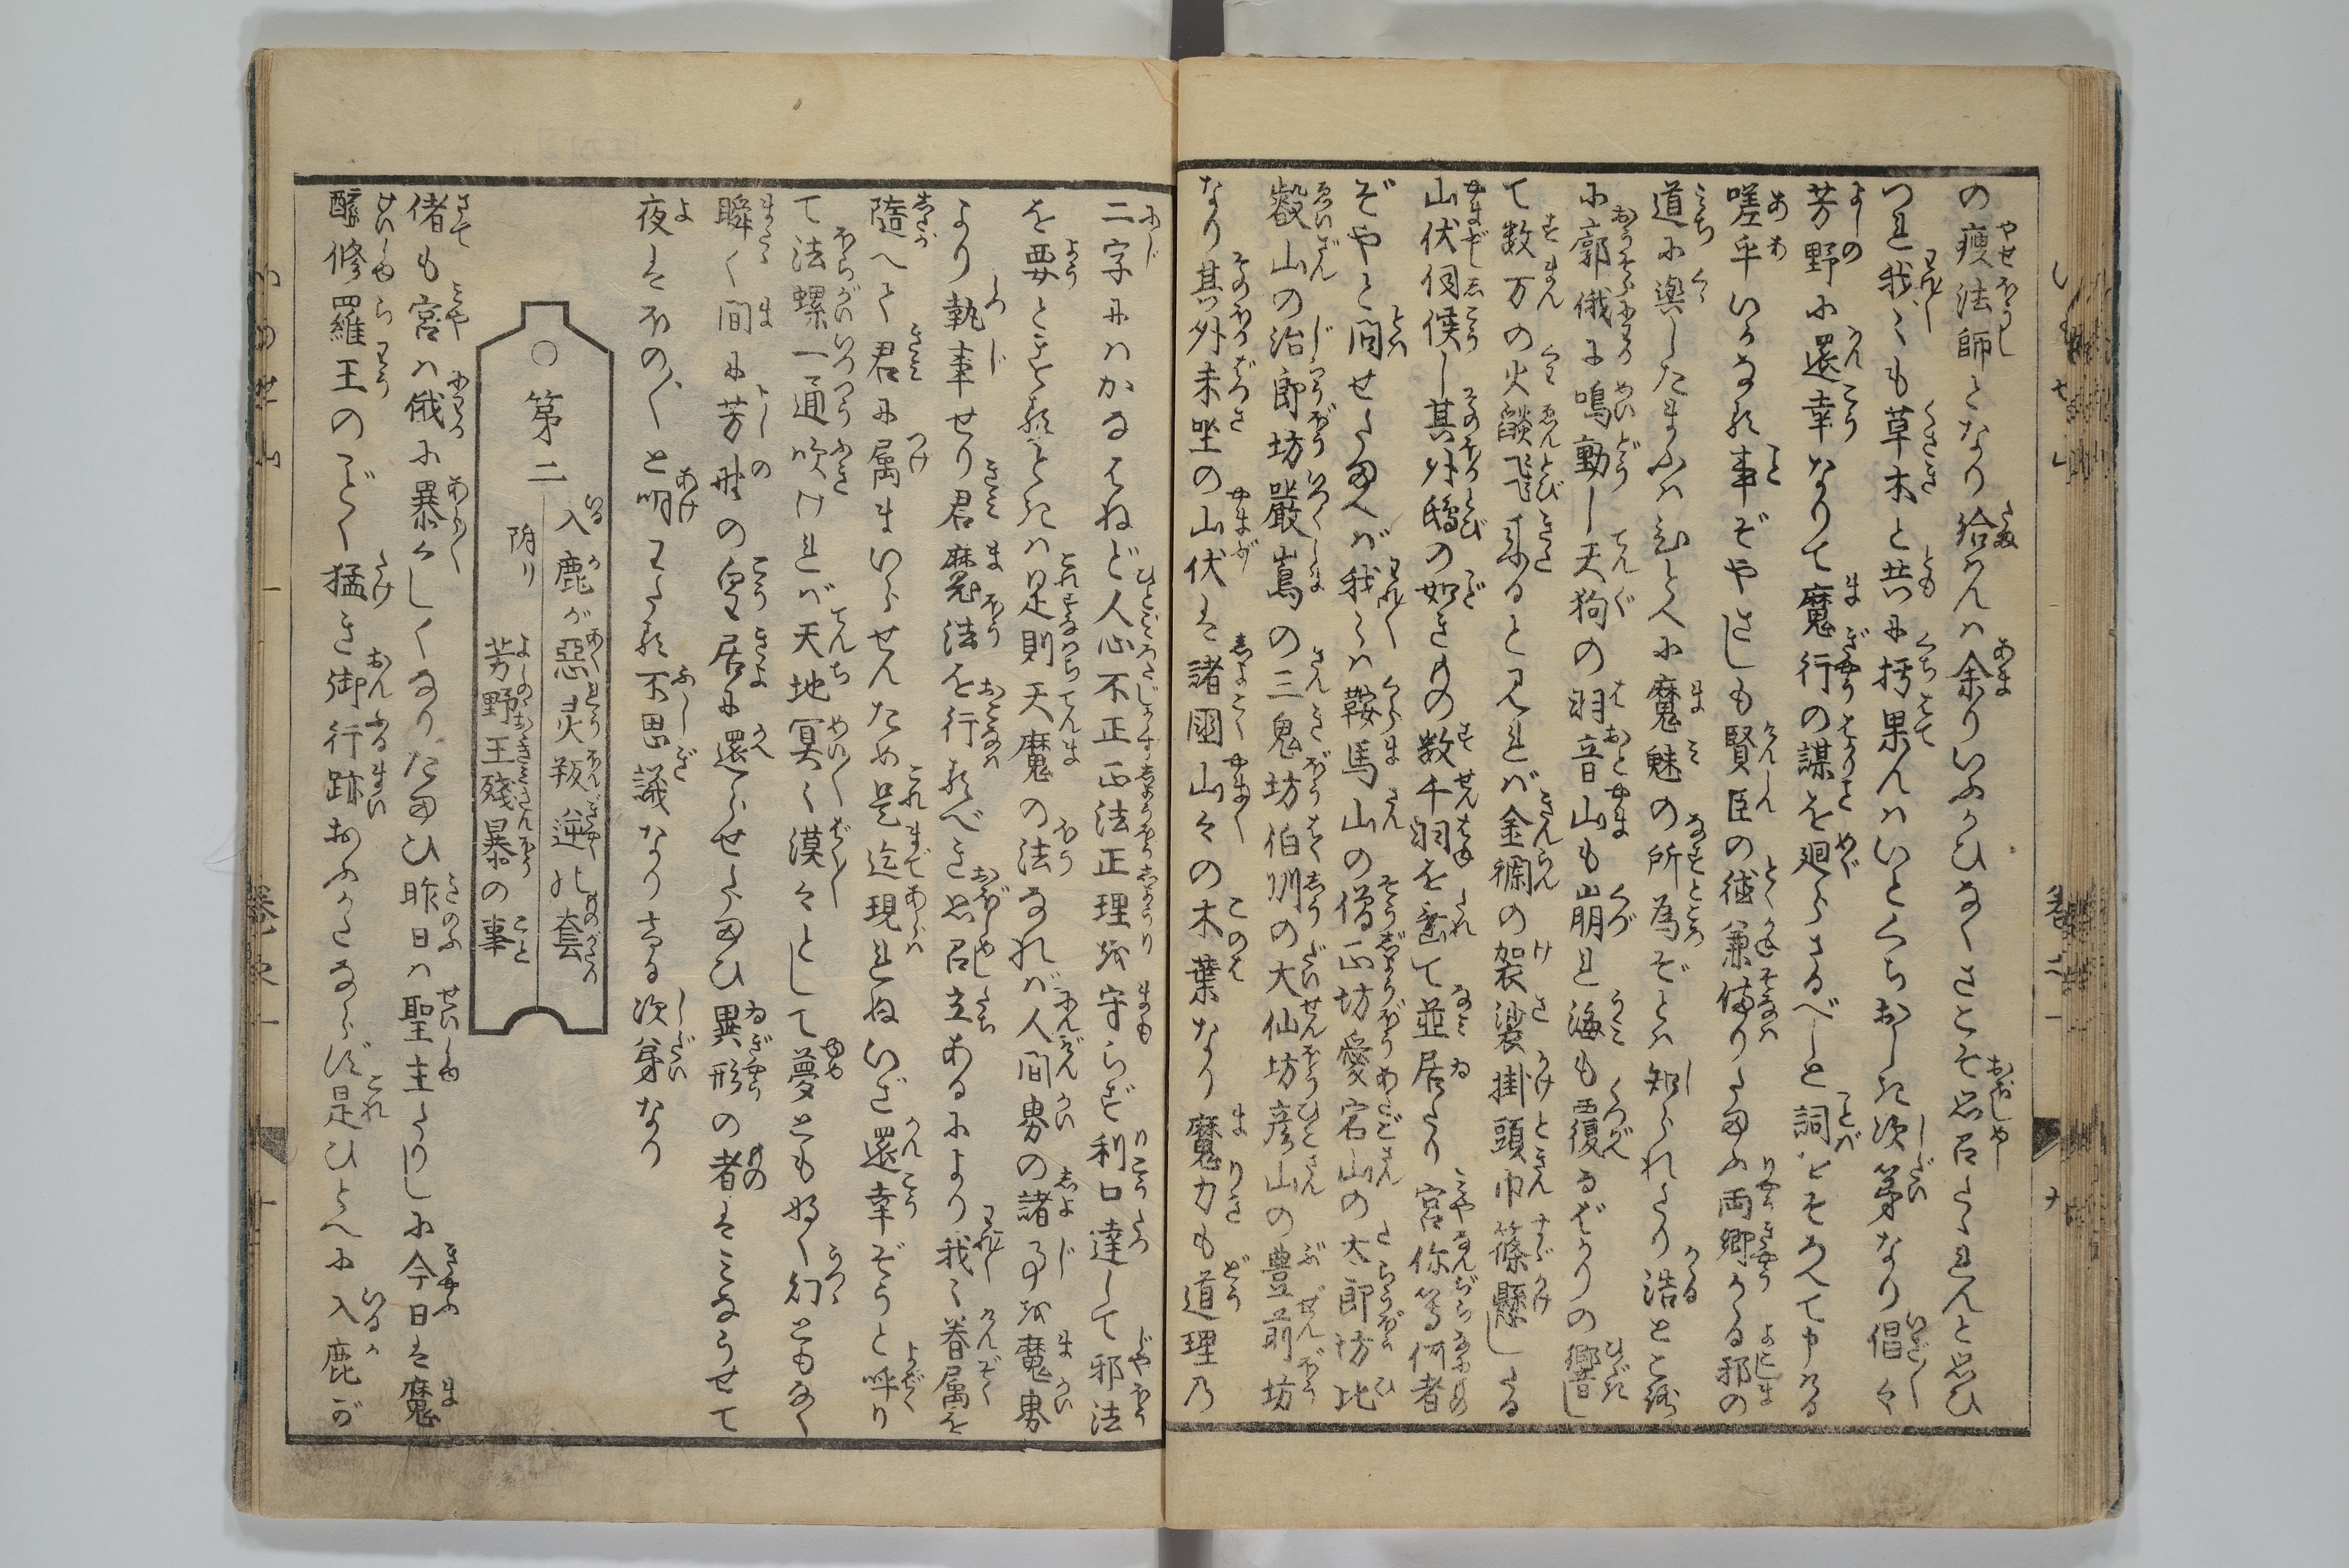 の瘦法師となり給はんは余りいふかひなくさこそ思召さゝれんと思ひ
つれ我〻も草木と共に朽果んはいとくちおしき次第なり倡々
芳野に還幸なりて魔行の謀を廻らさるべしと詞をそろへて申ける
嗟乎いかなる事ぞやさしも賢臣の徳兼備りたまふ両郷かゝる邪の
道に與したまふはひとへに魔魅の所為ぞとは知られたり浩とこ
に廓俄に鳴動し天狗の羽音山も崩れ海も覆るばかりの響し
て数万の火焔飛来ると見れば金襴の袈裟掛頭巾篠懸したる
山伏伺候し其外鴟の如きもの数千羽を垂て並居たり宮你等何者
ぞやと問せたまへば我〻は鞍馬山の僧正坊愛宕山の太郎坊比
叡山の治郎坊嚴嶌の三鬼坊伯州の大仙坊彦山の豊前坊
なり其外未坐の山伏は諸國山々の木葉なり魔力も道理乃
二字にはかなはねど人心不正正法正理を守らず利口達して邪法
を要とするときは是則天魔の法なれば人間界の諸事を魔界
より執事せり君魔法を行るべき思召立あるにより我〻眷属を
隨へて君に属まいらせんため是迄現れぬいざ還幸ぞうと呼り
て法螺一通吹ければ天地冥〻漠々として夢とも好く幻ともなく
瞬く間に芳野の皇居に還らせたまひ異形の者はみなうせて
夜はほの〲と明わたる不思議なりける次第なり
○第二
入鹿が惡灵叛逆の套
附り
芳野王殘暴の事
偖も宮は俄に暴々しくなりたまひ昨日は聖主たりしに今日は魔
醯修羅王のごとく猛き御行跡おふかたならず是ひとへに入鹿が
巻二